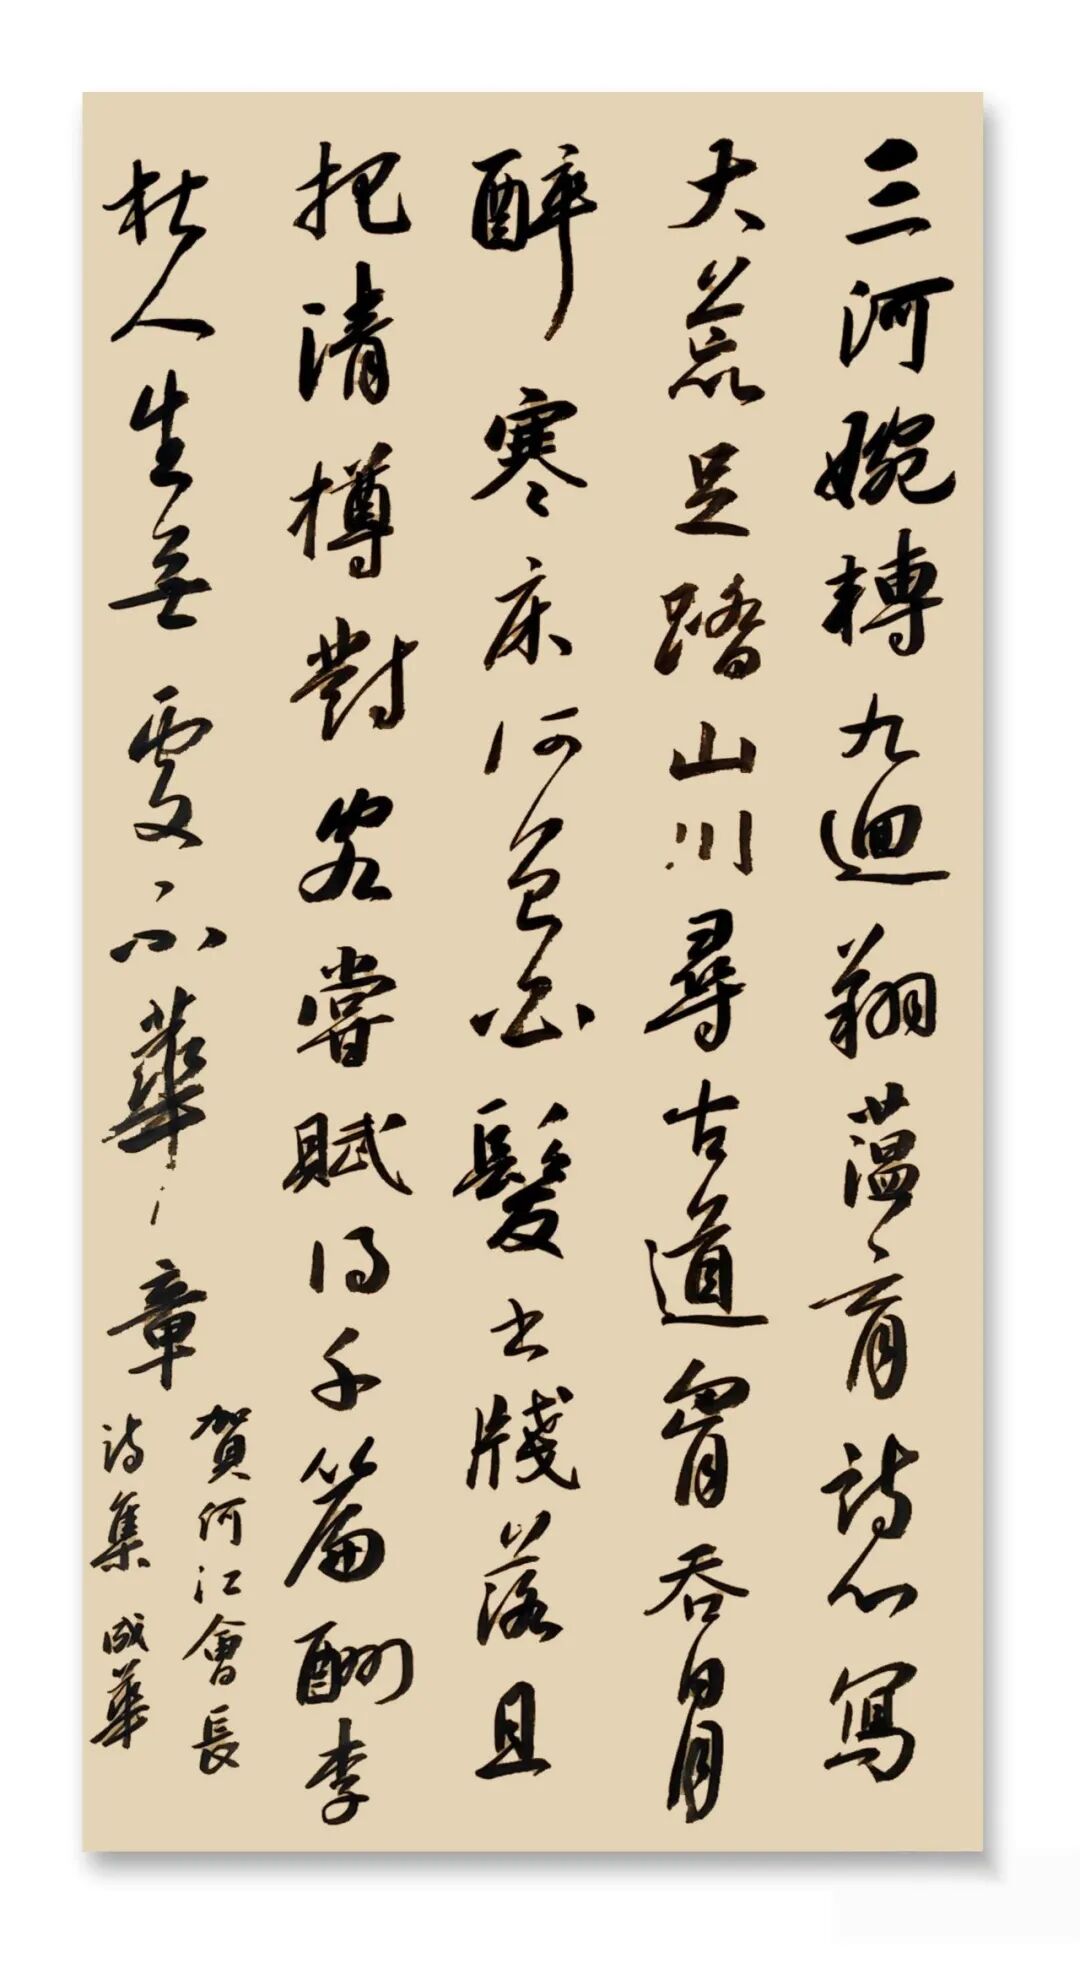 三河婉轉九迴翔蘊育詩心寫
大荒足踏山川尋古道胷吞日月
醉寒床何髮書牋落且
把清樽對客嘗賦得千篇酬李
杜人生無處不華章
賀何江會長
詩集 成華